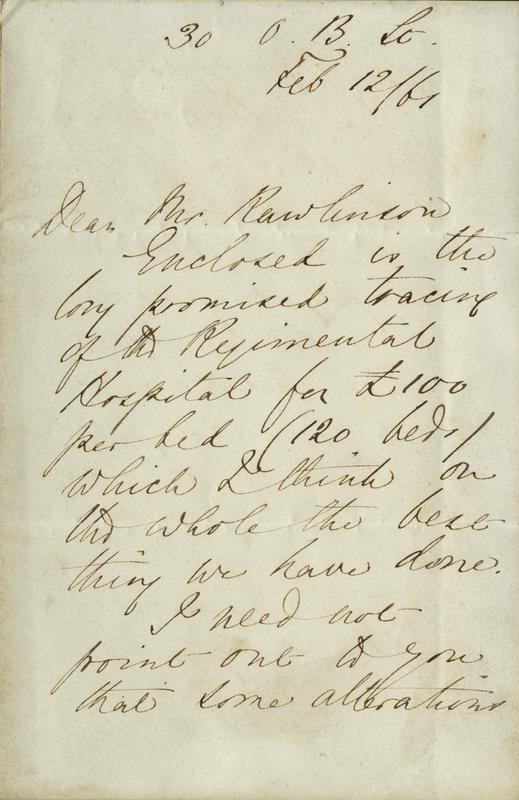 30 O. B. St.
Feb 12/61
Dear Mr. Rawlinson
Enclosed is the
long promised tracing
of the Regimental
Hospital for £100
per bed (120 beds)
which I think on
the whole the best
thing we have done.
I need not
point out to you
that some alterations